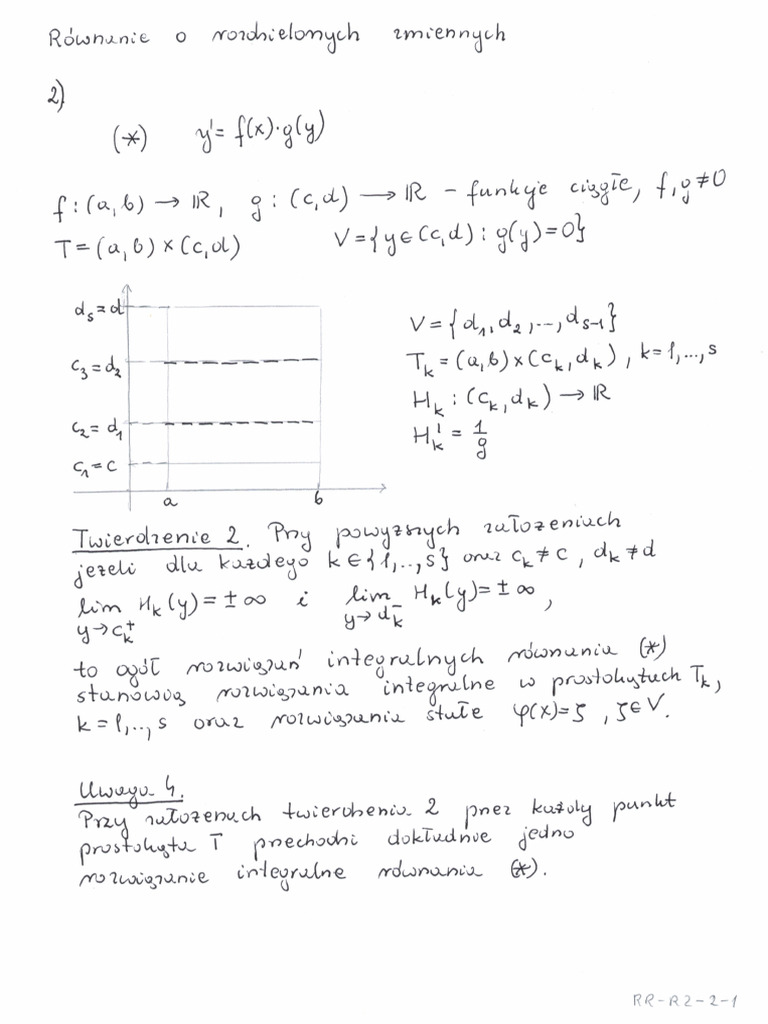 Równanie o rozdzielonych zmiennych
2)
(*) y' = f(x)·g(y)
f : (a,b) → ℝ, g : (c,d) → ℝ – funkcje ciągłe, f,g≠0
T = (a,b) × (c,d) V = {y∈(c,d) : g(y)=0}
d_s = d
c_3 = d_2
c_2 = d_1
c_1 = c
a b
V = {d_1, d_2, ..., d_{s-1}}
T_k = (a,b)×(c_k, d_k), k=1,...,s
H_k : (c_k, d_k) → ℝ
H_k' = 1/g
Twierdzenie 2. Przy powyższych założeniach
jeżeli dla każdego k∈{1,..,s} oraz c_k ≠ c, d_k ≠ d
lim_{y→c_k^+} H_k(y) = ±∞ i lim_{y→d_k^-} H_k(y) = ±∞,
to ogół rozwiązań integralnych równania (*)
stanowią rozwiązania integralne w prostokątach T_k,
k = 1,..,s oraz rozwiązania stałe φ(x)=ζ, ζ∈V.
Uwaga 4.
Przy założeniach twierdzenia 2 przez każdy punkt
prostokąta T przechodzi dokładnie jedno
rozwiązanie integralne równania (*).
RR-R2-2-1